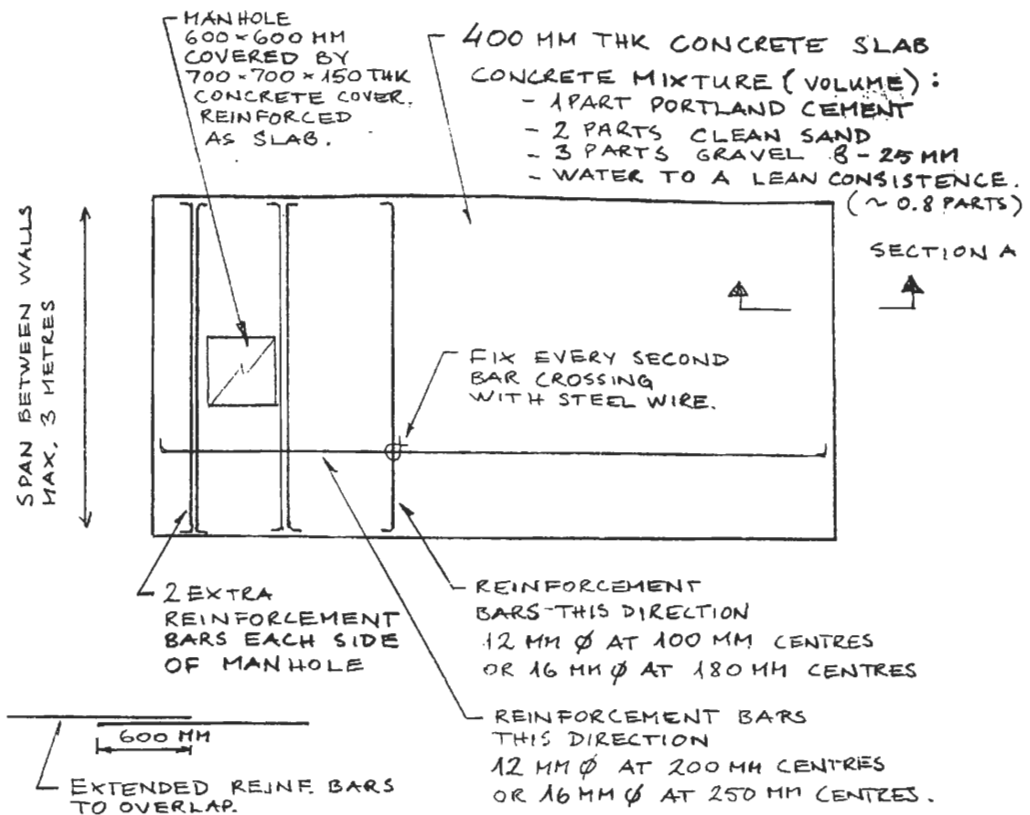 MANHOLE
600×600 MM
COVERED BY
700×700×150 THK
CONCRETE COVER.
REINFORCED
AS SLAB.
400 MM THK CONCRETE SLAB
CONCRETE MIXTURE (VOLUME):
- 1 PART PORTLAND CEMENT
- 2 PARTS CLEAN SAND
- 3 PARTS GRAVEL 8-25 MM
- WATER TO A LEAN CONSISTENCE.
(~ 0.8 PARTS)
SECTION A
SPAN BETWEEN WALLS
MAX. 3 METRES
FIX EVERY SECOND
BAR CROSSING
WITH STEEL WIRE.
2 EXTRA
REINFORCEMENT
BARS EACH SIDE
OF MANHOLE
REINFORCEMENT
BARS-THIS DIRECTION
12 MM Ø AT 100 MM CENTRES
OR 16 MM Ø AT 180 MM CENTRES
REINFORCEMENT BARS
THIS DIRECTION
12 MM Ø AT 200 MM CENTRES
OR 16 MM Ø AT 250 MM CENTRES.
600 MM
EXTENDED REINF. BARS
TO OVERLAP.